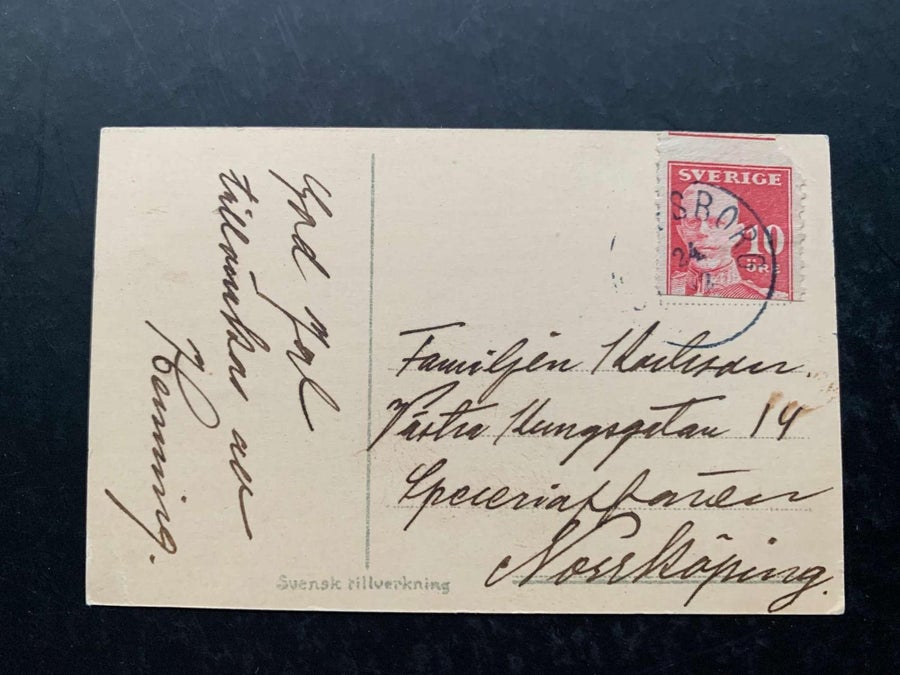 God Jul
tillönskas av
Henning.
SVERIGE
10
ÖRE
SBORG
24
Familjen Karlsson.
Västra Kungsgatan 14
Speceriaffären
Norrköping.
Svensk tillverkning